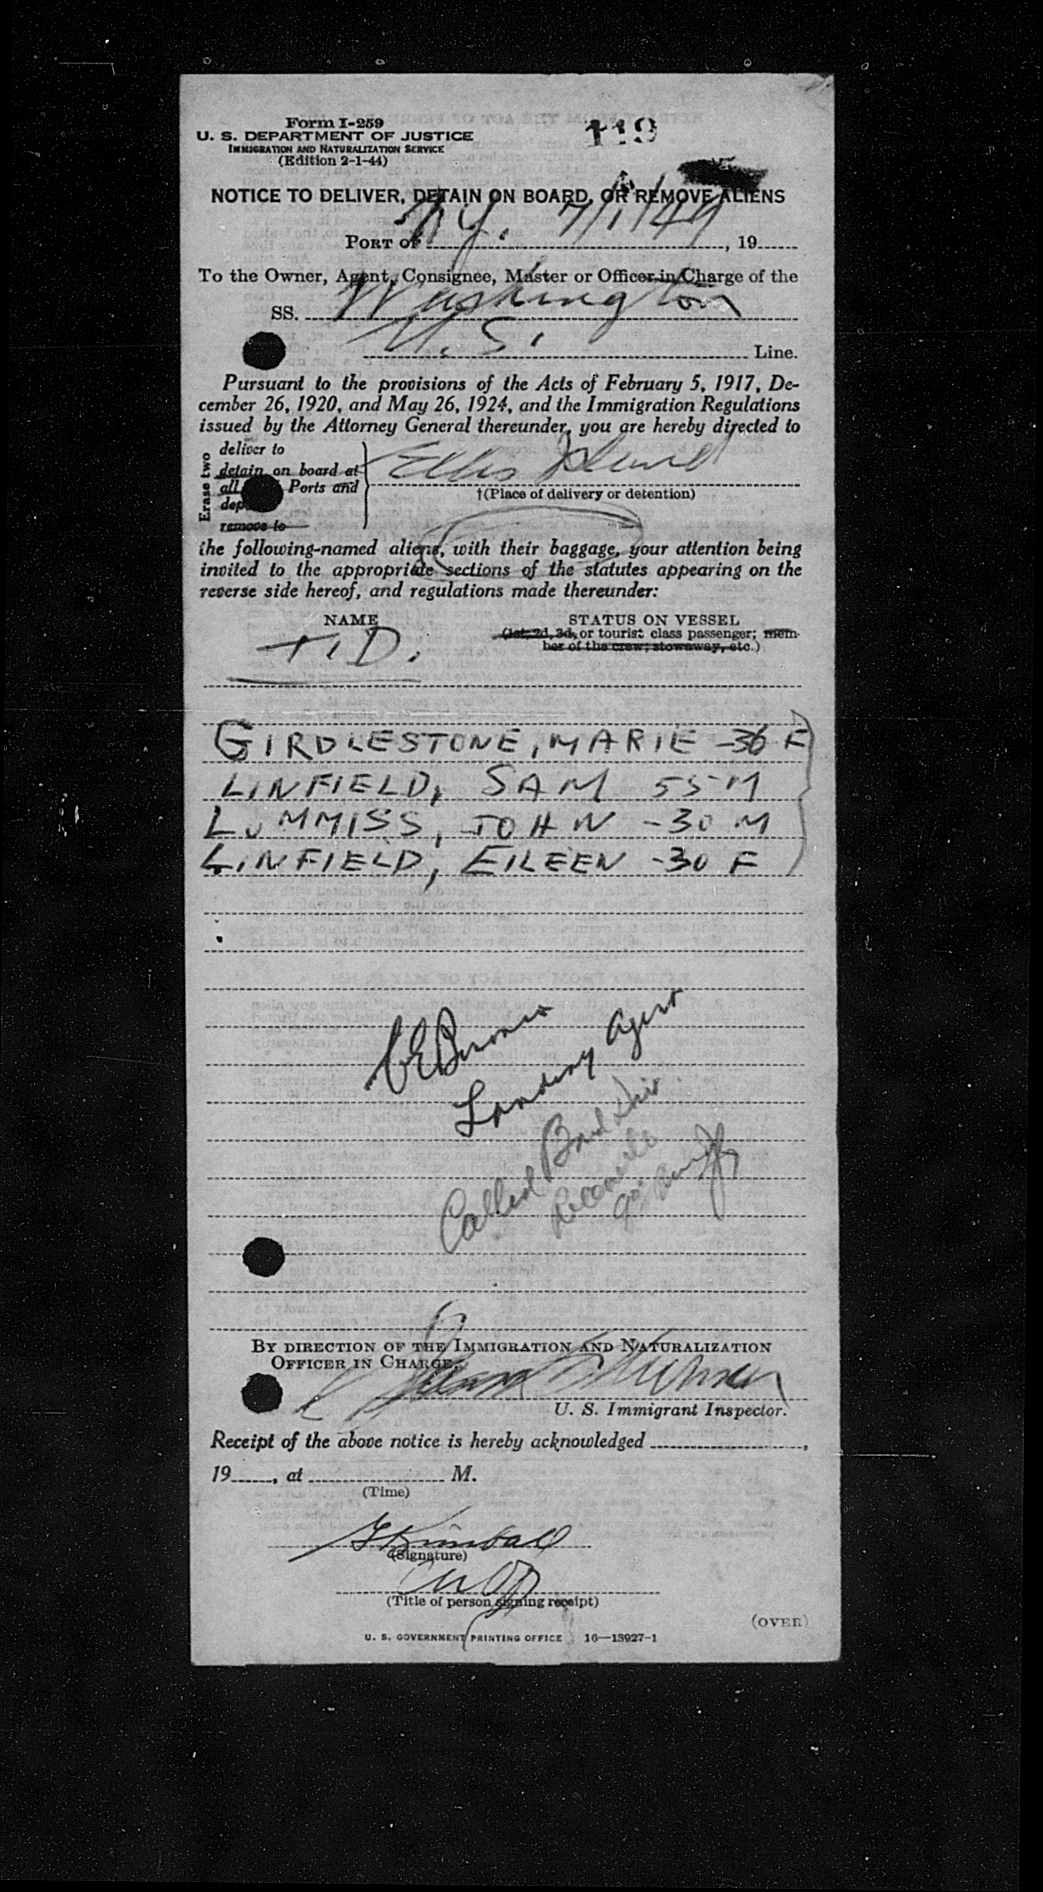 Form I-259
U. S. DEPARTMENT OF JUSTICE
IMMIGRATION AND NATURALIZATION SERVICE
(Edition 2-1-44)
119
NOTICE TO DELIVER, DETAIN ON BOARD, OR REMOVE ALIENS
PORT OF N.Y. 7/1/49, 19
To the Owner, Agent, Consignee, Master or Officer in Charge of the
SS. Washington
U.S. Line.
Pursuant to the provisions of the Acts of February 5, 1917, De-
cember 26, 1920, and May 26, 1924, and the Immigration Regulations
issued by the Attorney General thereunder, you are hereby directed to
Erase two
deliver to
detain on board at
all Ports and
remove to
Ellis Island
†(Place of delivery or detention)
the following-named aliens, with their baggage, your attention being
invited to the appropriate sections of the statutes appearing on the
reverse side hereof, and regulations made thereunder:
NAME STATUS ON VESSEL
(1st, 2d, 3d, or tourist class passenger; mem-
ber of the crew; stowaway, etc.)
T.D.
GIRDLESTONE, MARIE -36 F
LINFIELD, SAM 55 M
LUMMISS, JOHN -30 M
LINFIELD, EILEEN -30 F
Landing Agent
Called
BY DIRECTION OF THE IMMIGRATION AND NATURALIZATION
OFFICER IN CHARGE.
U. S. Immigrant Inspector.
Receipt of the above notice is hereby acknowledged ,
19 , at M.
(Time)
Kimball
(Signature)
(Title of person signing receipt)
(OVER)
U. S. GOVERNMENT PRINTING OFFICE 16—13927-1